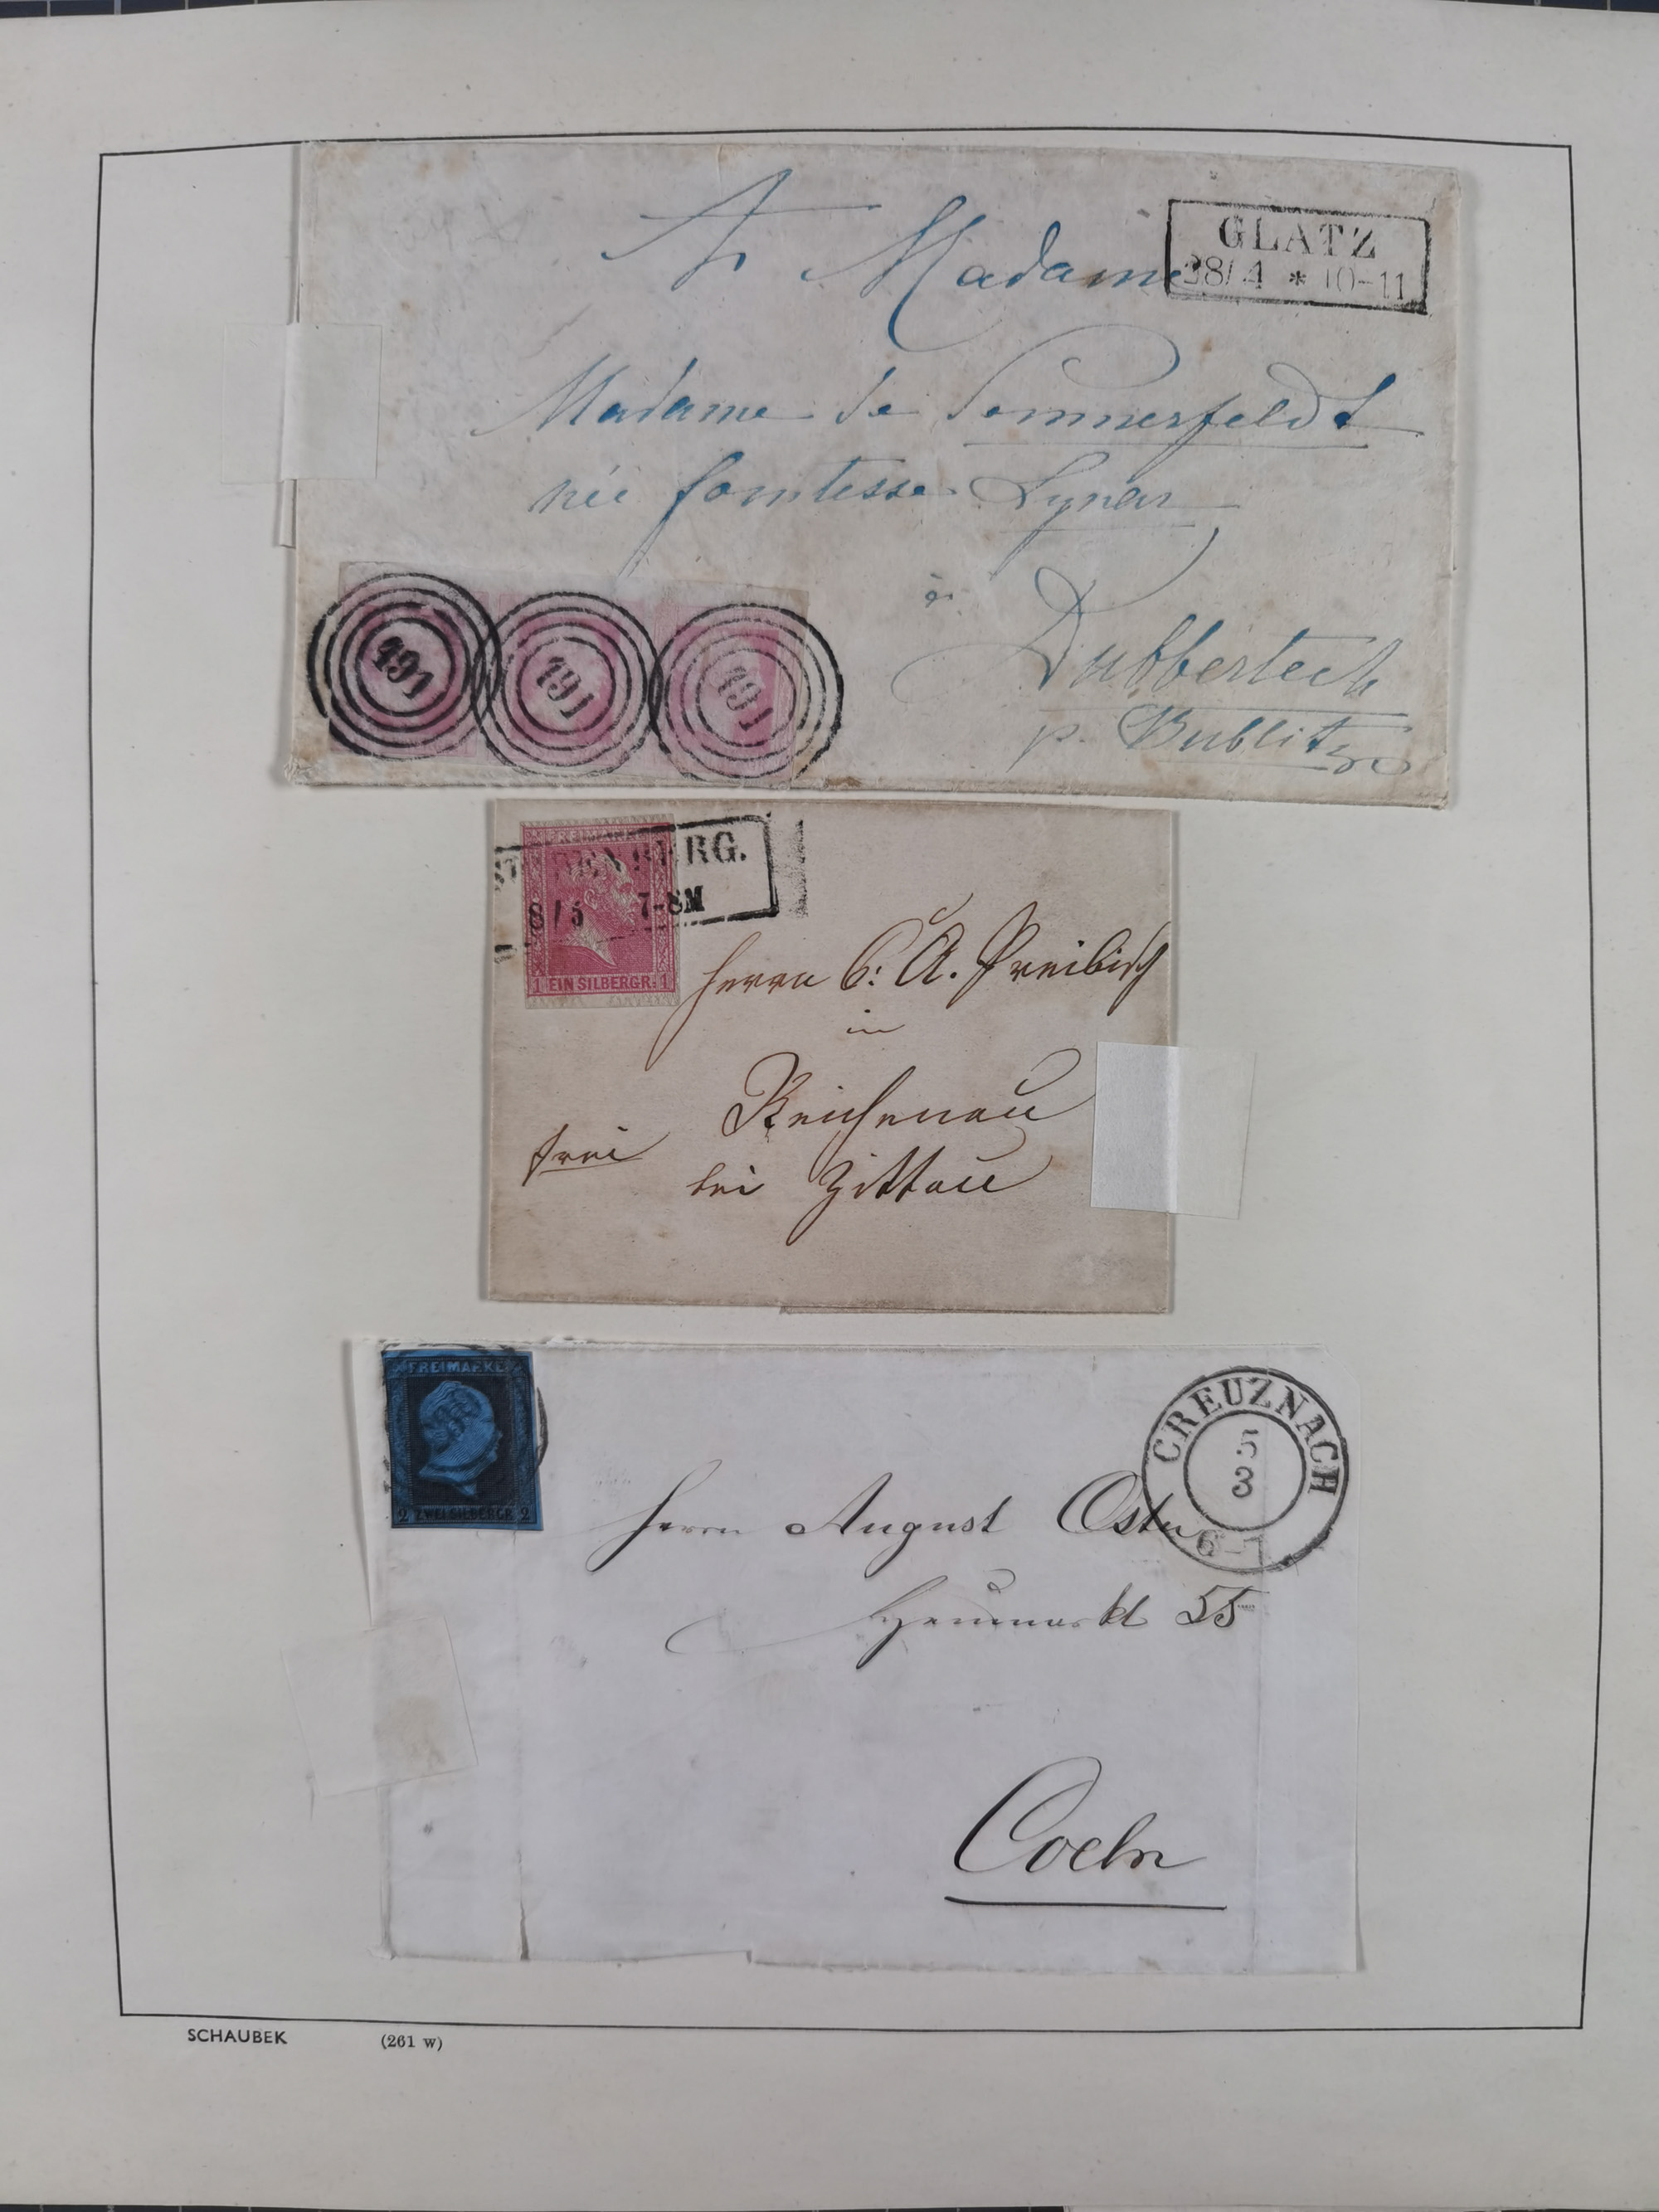 A Madame
GLATZ
28/4 * 10-11
Madame de Sommerfeldt
née Comtesse Lynar
à
Dubberteck
p. Bublitz
191 191 191
FREIMARKE
RG.
8/5 7-8M
1 EIN SILBERGR. 1
Herrn C. A. Preibisch
in
Reichenau
frei
bei Zittau
FREIMARKE
2 ZWEI SILBERGR. 2
CREUZNACH
5
3
6-7
Herrn August Oster
Heumarkt 55
Coeln
SCHAUBEK (261 w)